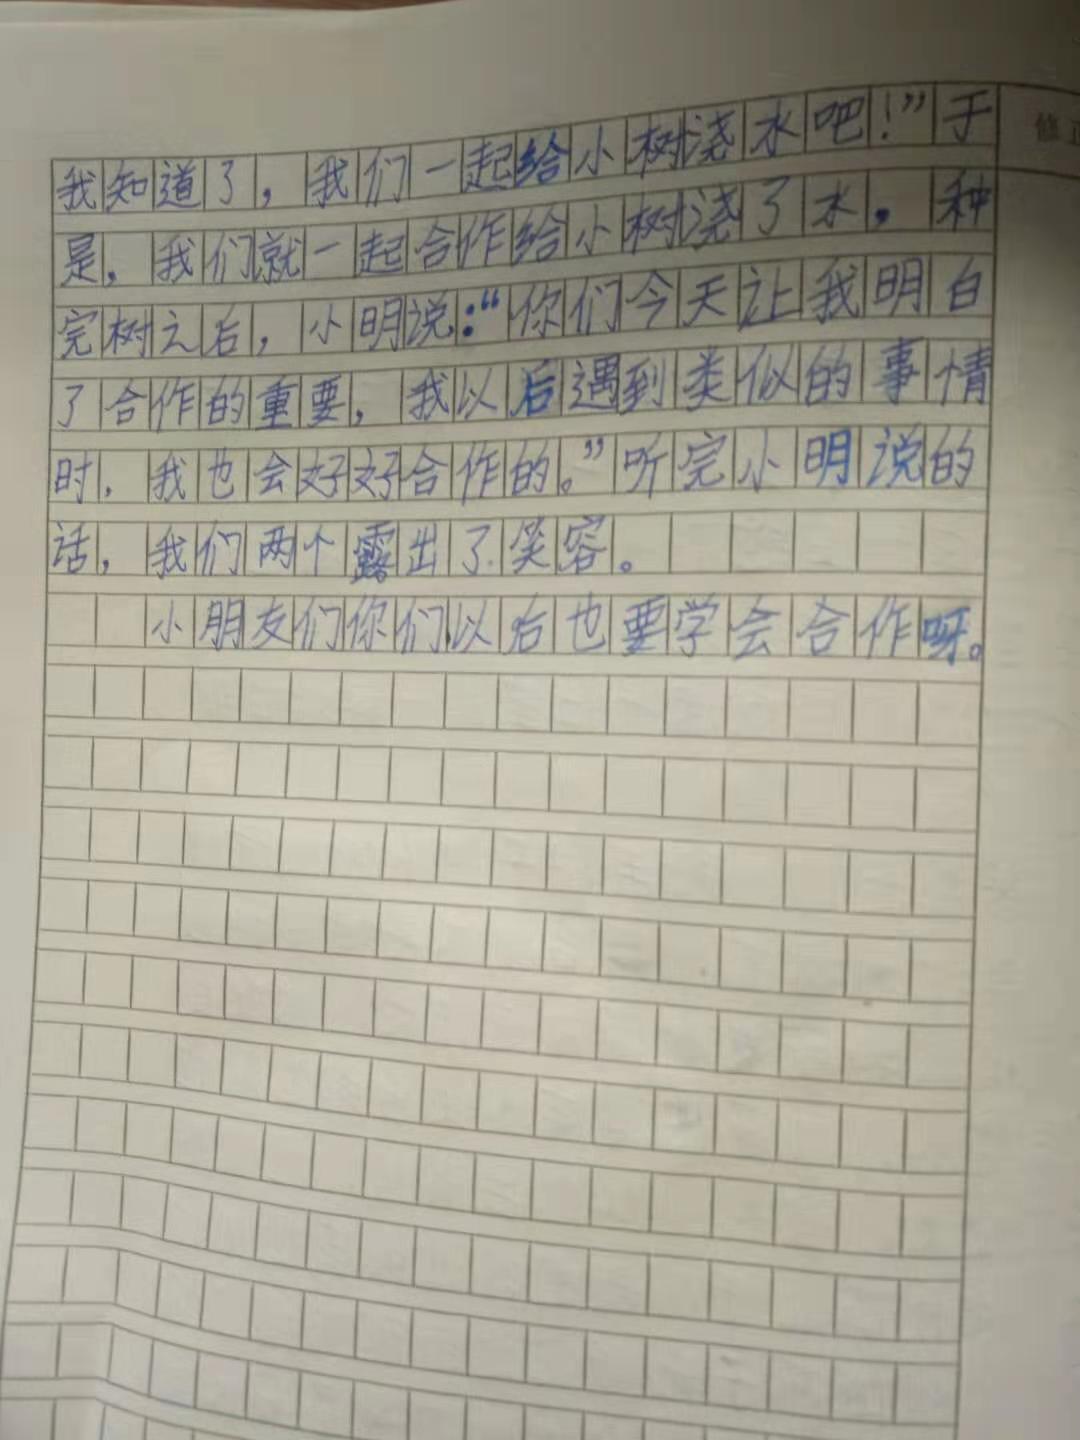 我知道了，我们一起给小树浇水吧！”于
是，我们就一起合作给小树浇了水。种
完树之后，小明说：“你们今天让我明白
了合作的重要，我以后遇到类似的事情
时，我也会好好合作的。”听完小明说的
话，我们两个露出了笑容。
小朋友们你们以后也要学会合作呀。
修正